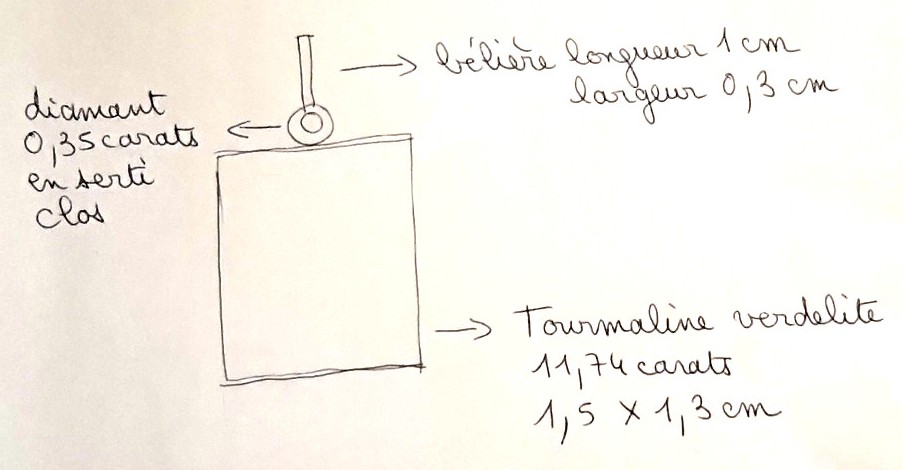 bélière longueur 1 cm
largeur 0,3 cm
diamant
0,35 carats
en serti
clos
Tourmaline verdelite
11,74 carats
1,5 x 1,3 cm